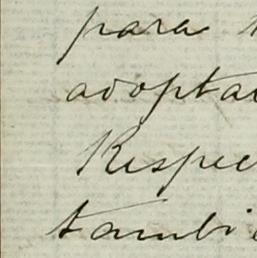 para
adopta
Respec
tambi